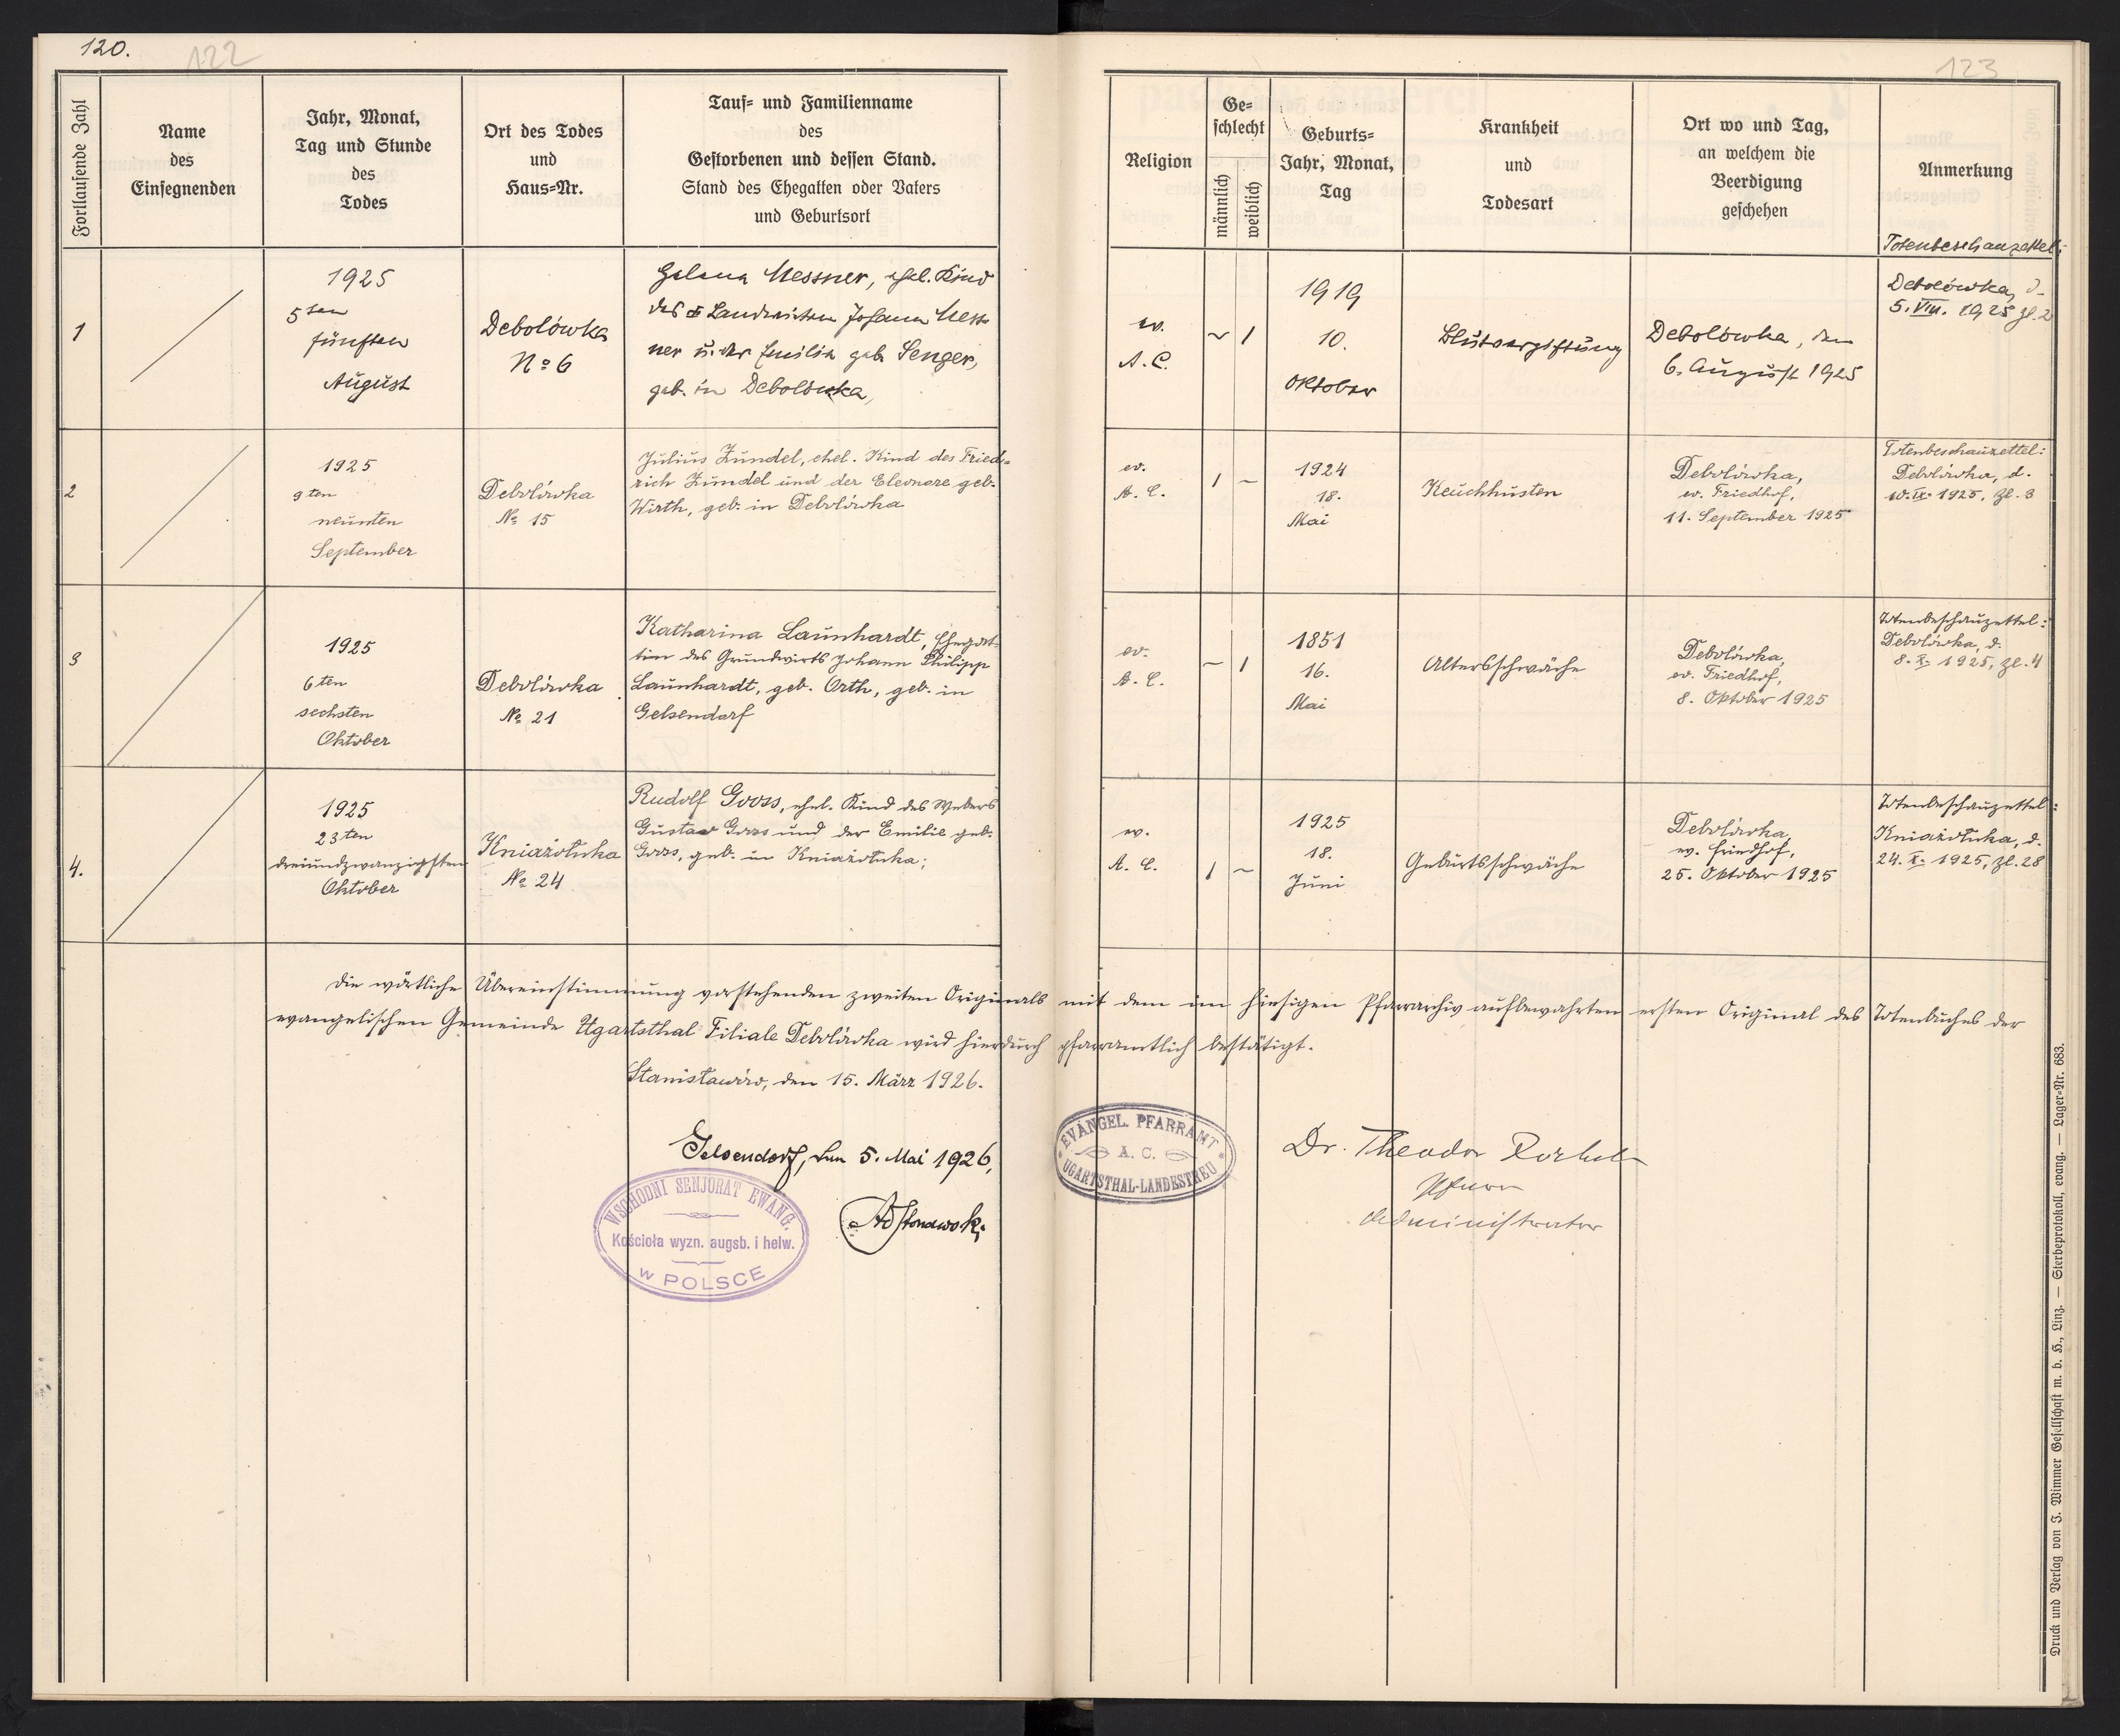 120.
122
Fortlaufende Zahl
Name
des
Einsegnenden
Jahr, Monat,
Tag und Stunde
des
Todes
Ort des Todes
und
Haus=Nr.
Tauf= und Familienname
des
Gestorbenen und dessen Stand.
Stand des Ehegatten oder Vaters
und Geburtsort
1
1925
5ten
fünften
August
Debolówka
No 6
Helena Messner, ehel. Kind
des Landwirten Johann Mess
ner u. der Emilia geb. Senger,
geb. in Debolówka,
2
1925
9ten
neunten
September
Debolówka
No 15
Julius Zundel, ehel. Kind des Fried=
rich Zundel und der Eleonore geb.
Wirth, geb. in Debolówka
3
1925
6ten
sechsten
Oktober
Debolówka
No 21
Katharina Launhardt, Ehegat=
tin des Grundwirts Johann Philipp
Launhardt, geb. Orth, geb. in
Gelsendorf
4.
1925
23ten
dreiundzwanzigsten
Oktober
Kniażołuka
No 24
Rudolf Gross, ehel. Kind des Webers
Gustav Gross und der Emilie geb.
Gross, geb. in Kniażołuka;
123
Religion
Ge=
schlecht
männlich
weiblich
Geburts=
Jahr, Monat,
Tag
Krankheit
und
Todesart
Ort wo und Tag,
an welchem die
Beerdigung
geschehen
Anmerkung
ev.
A. C.
~ 1
1919
10.
Oktober
Blutvergiftung
Debolówka, den
6. August 1925
Totenbeschauzettel:
Debolówka, d.
5. VIII. 1925 Zl. 2
ev.
A. C.
1 ~
1924
18.
Mai
Keuchhusten
Debolówka,
ev. Friedhof,
11. September 1925
Totenbeschauzettel:
Debolówka, d.
10. IX. 1925, Zl. 3
ev.
A. C.
~ 1
1851
16.
Mai
Altersschwäche
Debolówka,
ev. Friedhof,
8. Oktober 1925
Totenbeschauzettel:
Debolówka, d.
8. X. 1925, Zl. 4
ev.
A. C.
1 ~
1925
18.
Juni
Geburtsschwäche
Debolówka,
ev. Friedhof,
25. Oktober 1925
Totenbeschauzettel:
Kniażołuka, d.
24. X. 1925, Zl. 28
Die wörtliche Übereinstimmung vorstehenden zweiten Originals mit dem im hiesigen Pfarrarchiv aufbewahrten ersten Original des Totenbuches der
evangelischen Gemeinde Ugartsthal Filiale Debolówka wird hierdurch pfarramtlich bestätigt.
Stanisławów, den 15. März 1926.
EVANGEL. PFARRAMT
A. C.
UGARTSTHAL-LANDESTREU
Dr. Theodor
Pfarr
Administrator
Gelsendorf, den 5. Mai 1926,
WSCHODNI SENJORAT EWANG.
Kościoła wyzn. augsb. i helw.
w POLSCE
Druck und Verlag von J. Wimmer Gesellschaft m. b. H., Linz. — Sterbeprotokoll, evang. — Lager=Nr. 683.